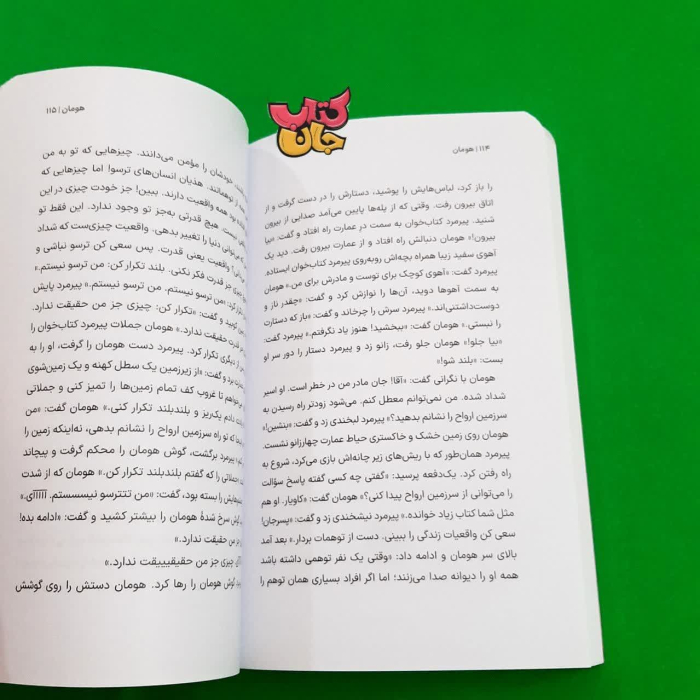 کتاب
جان
۱۱۴ | هومان
را باز کرد، لباس‌هایش را پوشید، دستارش را در دست گرفت و از
اتاق بیرون رفت. وقتی که از پله‌ها پایین می‌آمد صدایی از بیرون
شنید. پیرمرد کتاب‌خوان به سمت در عمارت راه افتاد و گفت: «بیا
بیرون!» هومان دنبالش راه افتاد و از عمارت بیرون رفت. دید یک
آهوی سفید زیبا همراه بچه‌اش روبه‌روی پیرمرد کتاب‌خوان ایستاده.
پیرمرد گفت: «آهوی کوچک برای توست و مادرش برای من.» هومان
به سمت آهوها دوید، آن‌ها را نوازش کرد و گفت: «چقدر ناز و
دوست‌داشتنی‌اند.» پیرمرد سرش را چرخاند و گفت: «باز که دستارت
را نبستی.» هومان گفت: «ببخشید! هنوز یاد نگرفتم.» پیرمرد گفت:
«بیا جلو!» هومان جلو رفت، زانو زد و پیرمرد دستار را دور سر او
بست: «بلند شو!»
هومان با نگرانی گفت: «آقا! جان مادر من در خطر است. او اسیر
شداد شده. من نمی‌توانم معطل کنم. می‌شود زودتر راه رسیدن به
سرزمین ارواح را نشانم بدهید؟» پیرمرد لبخندی زد و گفت: «بنشین!»
هومان روی زمین خشک و خاکستری حیاط عمارت چهارزانو نشست.
پیرمرد همان‌طور که با ریش‌های زیر چانه‌اش بازی می‌کرد، شروع به
راه رفتن کرد. یک‌دفعه پرسید: «گفتی چه کسی گفته پاسخ سؤالت
را می‌توانی از سرزمین ارواح پیدا کنی؟» هومان گفت: «کاویار. او هم
مثل شما کتاب زیاد خوانده.» پیرمرد نیشخندی زد و گفت: «پسرجان!
سعی کن واقعیات زندگی را ببینی. دست از توهمات بردار.» بعد آمد
بالای سر هومان و ادامه داد: «وقتی یک نفر توهمی داشته باشد
همه او را دیوانه صدا می‌زنند؛ اما اگر افراد بسیاری همان توهم را
هومان | ۱۱۵
خودشان را مؤمن می‌دانند. چیزهایی که تو به من
توهمانند. هذیان انسان‌های ترسو! اما چیزهایی که
بود همه واقعیت دارند. ببین! جز خودت چیزی در این
نیست. هیچ قدرتی به‌جز تو وجود ندارد. این فقط تو
می‌توانی دنیا را تغییر بدهی. واقعیت چیزی‌ست که شداد
واقعیت یعنی قدرت. پس سعی کن ترسو نباشی و
جز قدرت فکر نکنی. بلند تکرار کن: من ترسو نیستم.»
کرد: «من ترسو نیستم. من ترسو نیستم.» پیرمرد پایش
کوبید و گفت: «تکرار کن: چیزی جز من حقیقت ندارد.
قدرت حقیقت ندارد.» هومان جملات پیرمرد کتاب‌خوان را
دیگری تکرار کرد. پیرمرد دست هومان را گرفت، او را به
برد و گفت: «از زیرزمین یک سطل کهنه و یک زمین‌شوی
می‌خواهم تا غروب کف تمام زمین‌ها را تمیز کنی و جملاتی
دادم یک‌ریز و بلندبلند تکرار کنی.» هومان گفت: «من
که تو راه سرزمین ارواح را نشانم بدهی، نه‌اینکه زمین را
پیرمرد برگشت، گوش هومان را محکم گرفت و پیچاند
جملاتی را که گفتم بلندبلند تکرار کن.» هومان که از شدت
را بسته بود، گفت: «من تتترسو نیسسستم. آآآآآی.»
گوش سرخ شدهٔ هومان را بیشتر کشید و گفت: «ادامه بده!
جز من حقیقت ندارد.»
چیزی جز من حقیقییییقت ندارد.»
گوش هومان را رها کرد. هومان دستش را روی گوشش